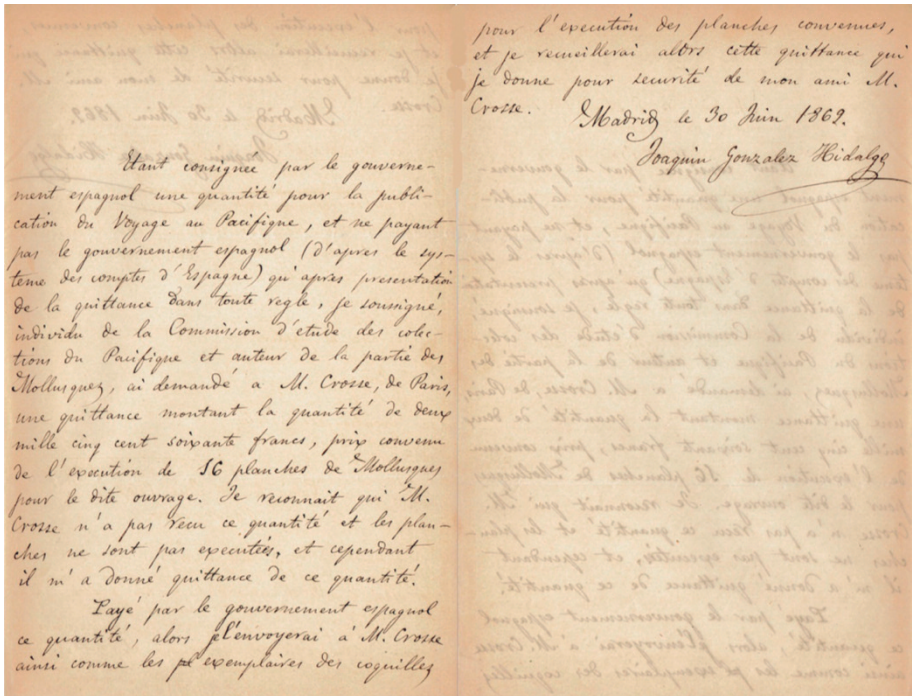 Etant consignée par le gouverne-
ment espagnol une quantité pour la publi-
cation du Voyage au Pacifique, et ne payant
pas le gouvernement espagnol (d'après le sys-
tème des comptes d'Espagne) qu'apres presentation
de la quittance dans toute regle, je soussigné,
individu de la Commission d'étude des colec-
tions du Pacifique et auteur de la partie des
Mollusques, ai demandé a M. Crosse, de Paris,
une quittance montant la quantité de deux
mille cinq cent soixante francs, prix convenu
de l'execution de 16 planches de Mollusques
pour le dite ouvrage. Je reconnait qui M.
Crosse n'a pas recu ce quantité et les plan-
ches ne sont pas executées, et cependant
il m'a donné quittance de ce quantité.
Payé par le gouvernement espagnol
ce quantité, alors je l'envoyerai à M. Crosse
ainsi comme les pl exemplaires des coquilles
pour l'execution des planches convenues,
et je recueillerai alors cette quittance qui
je donne pour securité de mon ami M.
Crosse.
Madrid le 30 Juin 1869.
Joaquin Gonzalez Hidalgo